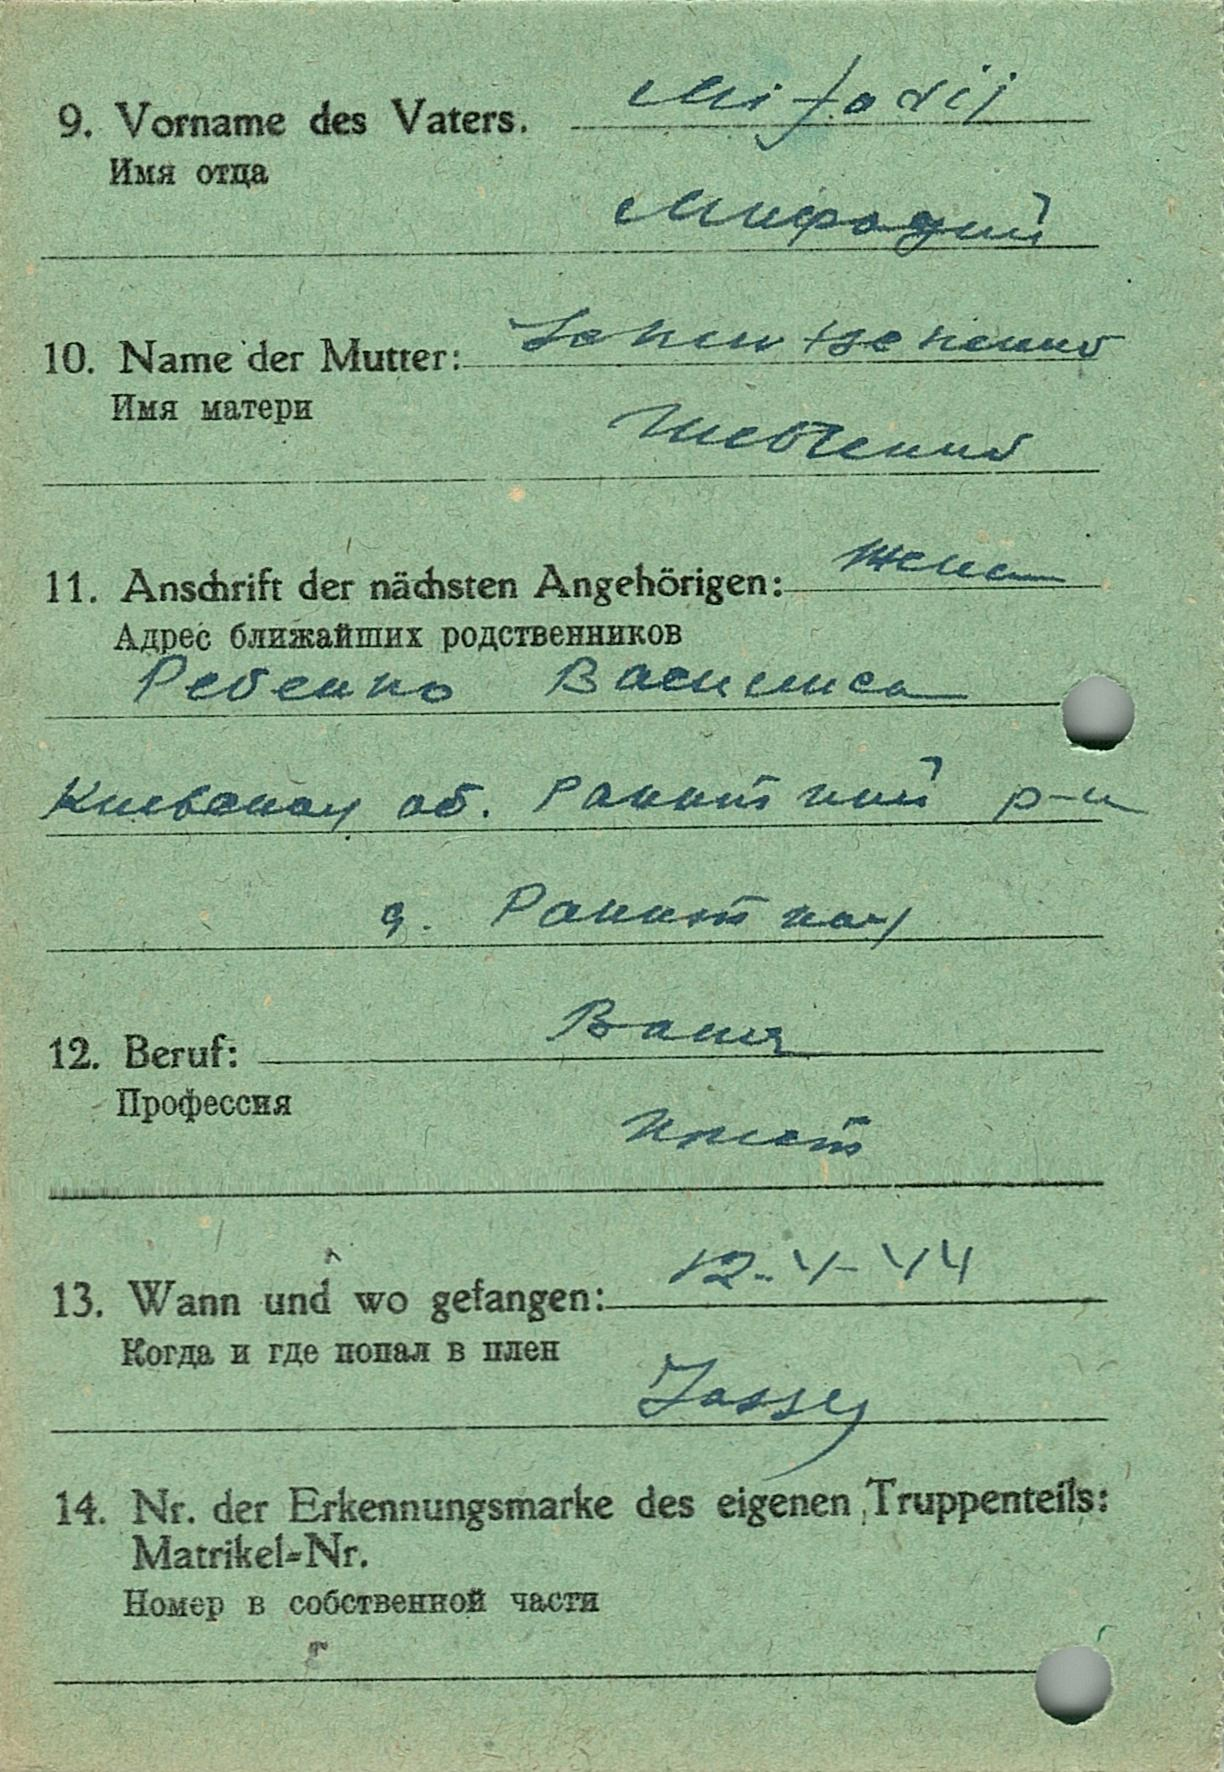 9. Vorname des Vaters. Mifodij
Имя отца
Мифодий
10. Name der Mutter: Schewtschenko
Имя матери
Шевченко
11. Anschrift der nächsten Angehörigen: жена
Адрес ближайших родственников
Ребенко Василиса
Киевская об. Ракитский р-н
д. Ракитная
12. Beruf:
Профессия
13. Wann und wo gefangen: 12-V-44
Когда и где попал в плен
Jassy
14. Nr. der Erkennungsmarke des eigenen Truppenteils:
Matrikel-Nr.
Номер в собственной части